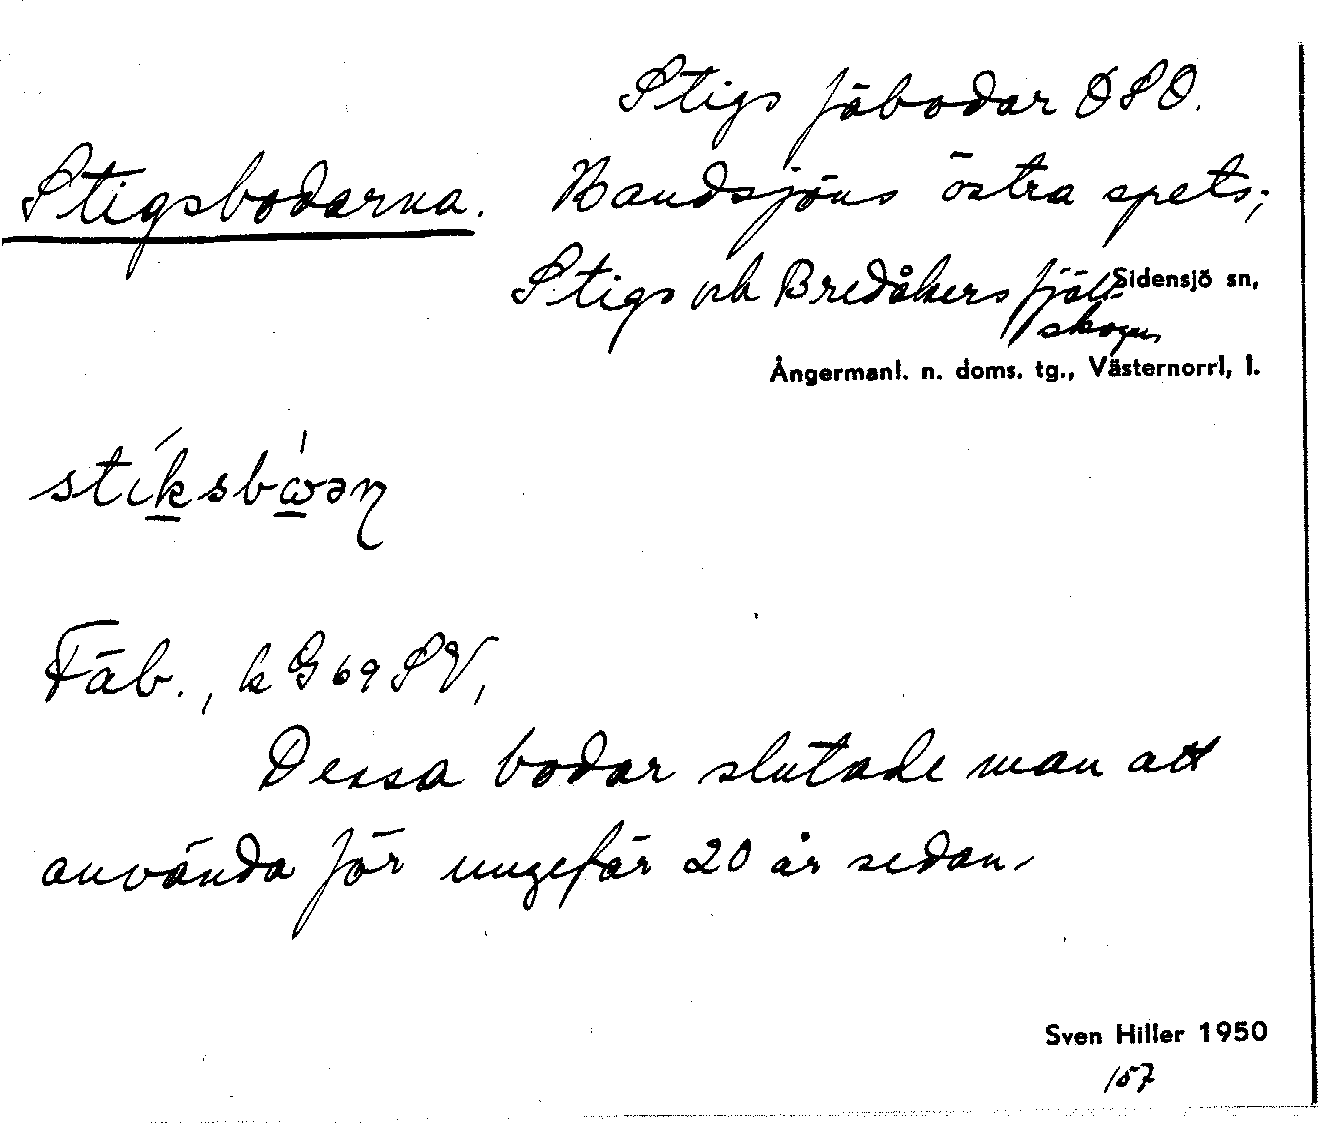 Stigs fäbodar OSO.
Stigsbodarna. Nandsjöns östra spets;
Stigs och Bredåkers fjäll-
skogen
Sidensjö sn,
Ångermanl. n. doms. tg., Västernorrl, l.
Fäb., k G 69 SV,
Dessa bodar slutade man att
använda för ungefär 20 år sedan.
Sven Hiller 1950
157